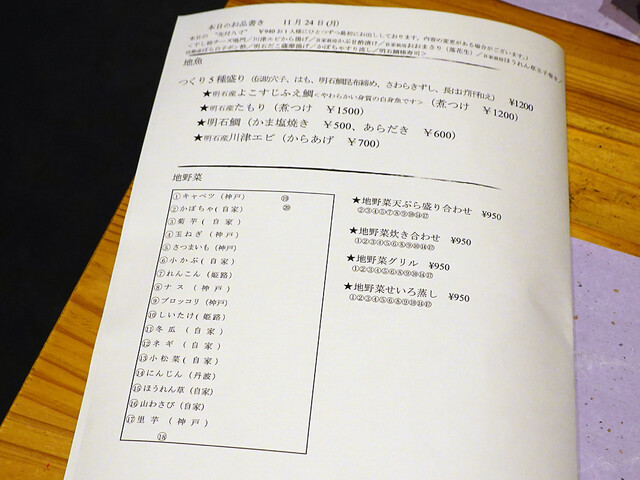 本日のお品書き　11月24日(月)
本日の“先付八寸”　￥940お1人様にひとつずつ最初にお出ししております。内容の変更がある場合がございます。）
地魚
つくり5種盛り（伝助穴子、はも、明石鯛昆布締め、さわらきずし、長はげ肝和え）　￥1200
★明石産よこすじふえ鯛＜やわらかい身質の白身魚です＞（煮つけ　￥1200）
★明石産たもり（煮つけ　￥1500）
★明石鯛（かま塩焼き　￥500、あらだき　￥600）
★明石産川津エビ（からあげ　￥700）
地野菜
①キャベツ（神戸）　⑲
②かぼちゃ（自家）　⑳
③菊芋（自家）
④玉ねぎ（神戸）
⑤さつまいも（神戸）
⑥小かぶ（自家）
⑦れんこん（姫路）
⑧ナス（神戸）
⑨ブロッコリ（神戸）
⑩しいたけ（姫路）
⑪冬瓜（自家）
⑫ネギ（自家）
⑬小松菜（自家）
⑭にんじん（丹波）
⑮ほうれん草（自家）
⑯山わさび（自家）
⑰里芋（神戸）
⑱
★地野菜天ぷら盛り合わせ　￥950
①②③④⑤⑦⑧⑨⑩⑭⑰
★地野菜炊き合わせ　￥950
①②③④⑤⑥⑧⑨⑩⑭⑰
★地野菜グリル　￥950
①②③④⑤⑥⑦⑧⑨⑩⑭⑰
★地野菜せいろ蒸し　￥950
①②③④⑤⑥⑦⑧⑨⑩⑭⑰